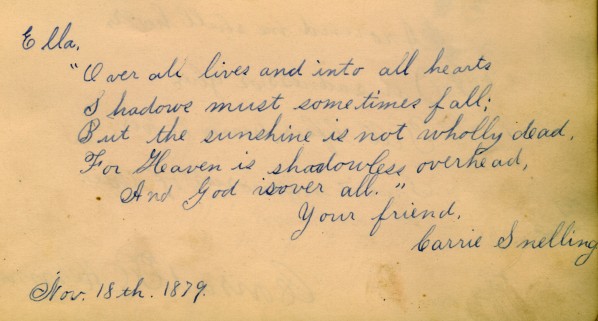 Ella,
"Over all lives and into all hearts
Shadows must sometimes fall;
But the sunshine is not wholly dead,
For Heaven is shadowless overhead,
And God is over all."
Your friend,
Carrie Snelling
Nov. 18th. 1879.